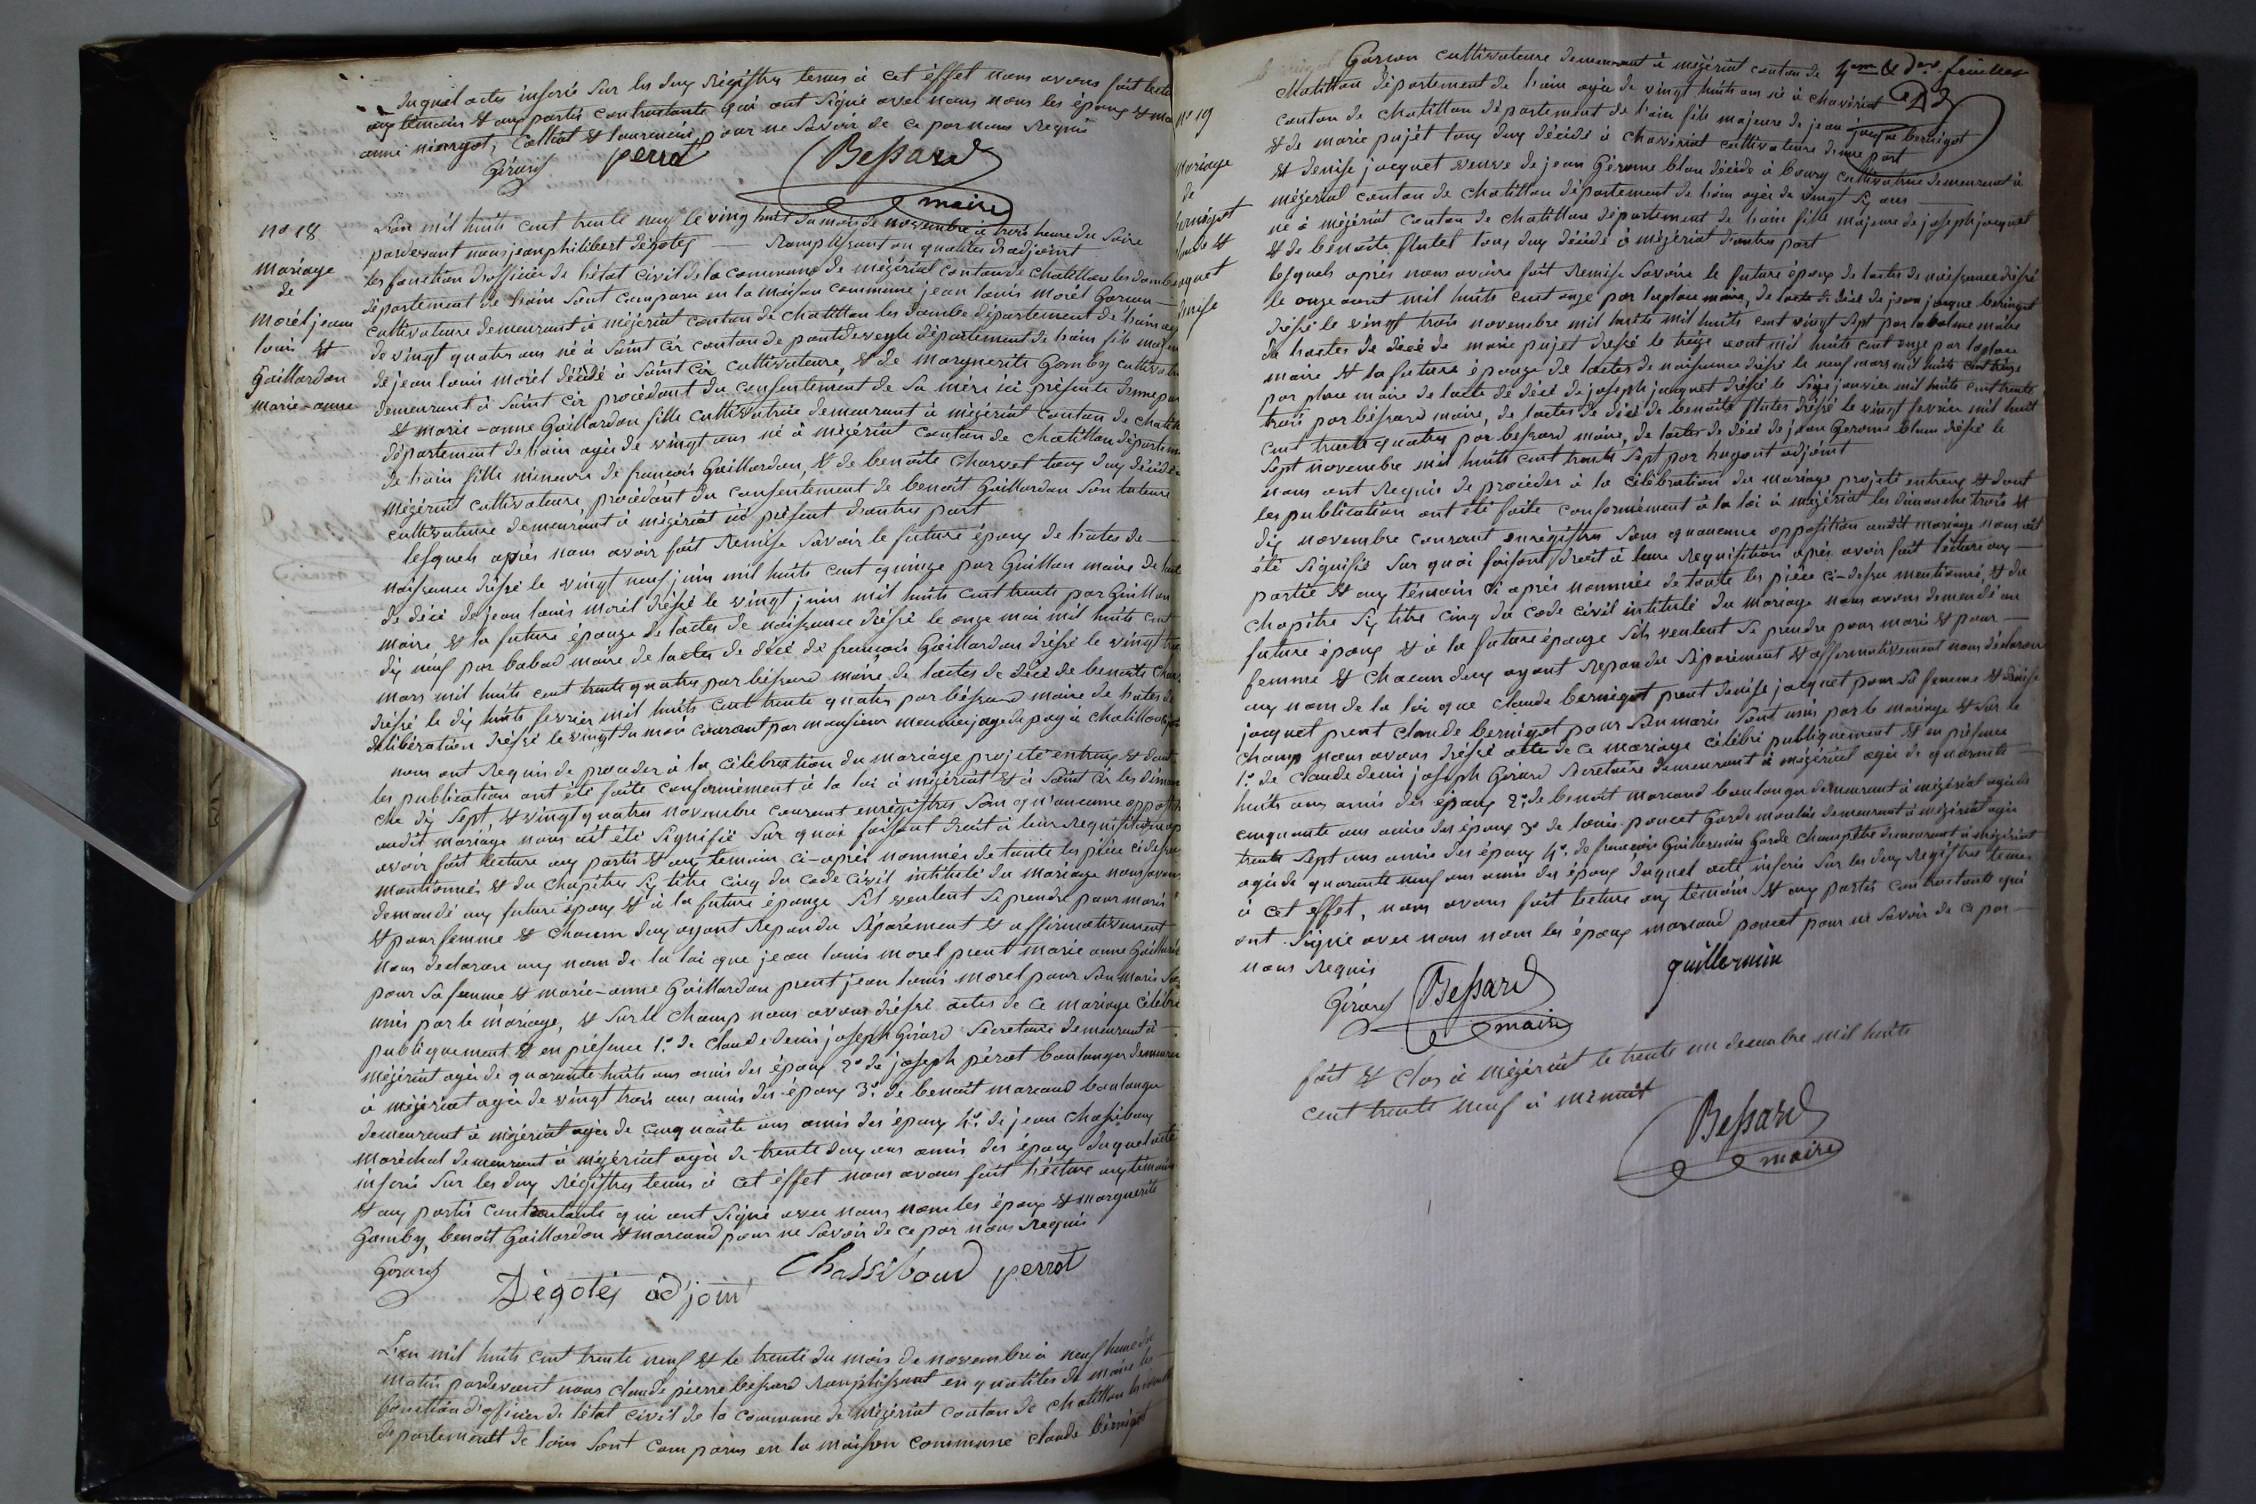 duquel actes inserés sur les deux régistres tenus à cet éffet nous avons fait lecture
aux témoins et aux partis contractante qui ont signé avec nous nons les époux et
anné niongot, Colliat et pour ne savoir de ce par nous requis
Gérard perrot Bessard
maire
no 18
mariage
de
Morél jean
louis et
Gaillardon
marie-anne
L'an mil huits cent trente neuf le ving huit du mois de novembre à trois heure du soire
pardevant nous jean philibert dégotes ramplissant en qualité d'adjoint
les fonction d'officier de l'état civil de la commune de mézériat canton de chatillon les dombe
département de l'ain sont comparu en la maison commune jean louis morél Garson
cultivateure demeurant à mézériat canton de chatillon les dombe département de l'ain agé
de vingt quatre ans né à saint Cir canton de pontdeveyle département de l'ain fils
de jean louis morél décédé à saint Cir cultivateure, et de marguerite Gamby
demeurant à saint Cir procédant du consentement de sa mère ici présente d'une part
et marie-anne Gaillardon fille cultivatrice demeurant à mézériat canton de
département de l'ain agée de vingt ans né à mézériat canton de chatillon département
de l'ain fille mineure de françois Gaillardon, et de benoite Charvet tous deux décédés à
mézériat cultivateure, procédant du consentement de benoit Gaillardon son tuteure
cultivateure demeurant à mézériat ici présent d'autre part
lesquels après nous avoir fait remise savoir le future époux de l'actes de
naissance dréssé le vingt neuf juin mil huits cent quinze par Guillon maire de
de décé de jean louis morél dréssé le vingt juin mil huits cent trente par Guillon
maire, et la future épouze de l'actes de naissance dréssé le onze mai mil huits cent
dix neuf par babad maire de l'actes de décé de françois Gaillardon dréssé le vingt
mars mil huits cent trente quatre par béssard maire, de l'actes de décé de benoite
dréssé le dix huits fevrier mil huits cent trente quatre par béssard maire de l'actes de
délibération dréssé le vingt du mois courant par monsieur juge de paix à chatillon
nous ont requis de proceder à la célébration du mariage projété entreux et dont
les publication ont été faite conformément à la loi à mézériat et à saint Cir les diman
che dix sept et vingt quatre novembre courant enrégistres sans qu'aucune
audit mariage nous ait été signifié sur quoi faisant droit à leur requisition
avoir fait lecture aux partis et aux temoin ci-après nommés de toute les pièce ci dessu
mentionnés et du chapitre six titre cinq du code civil intitulé du mariage nous avons
demandé aux futur époux et à la future épouze s'ils veulent se prendre pour maris
et pour femme et chacun deux ayant repondu séparément et affirmativement
nous declaron aux nom de la loi que jean louis morel prent marie anne
pour sa femme et marie-anne Gaillardon prent jean louis morel pour son maris
unis par le mariage, et sur le champ nous avons dréssé actes de ce mariage célébré
publiquement et en présence 1.º de claude denis joseph Girard secretaire demeurant à
mézériat agé de quarante huits ans amis des époux 2º de joseph pérrot boulanger
à mézériat agé de vingt trois ans amis des époux 3.º de benoit marcaud boulanger
demeurant à mézériat agé de cinquante ans amis des époux 4.º de jean chassiboux
maréchal demeurant à mézériat agé de trente deux ans amis des époux duquel acte
inserés sur les deux régistres tenus à cet éffet nous avons fait lécture aux témoin
et aux partis contractante qui ont signé avec nous nom les époux et marguerite
Gamby, benoit Gaillardon et marcaud pour ne savoir de ce par nous requis
Gérard Dégotes adjoin Chassiboud perrot
L'an mil huits cent trente neuf et le trente du mois de novembre à neuf heure du
matin pardevant nous claude pierre béssard ramplissant en qualités de maire les
fonction d'officier de l'état civil de la commune de mézériat canton de chatillon les
département de l'ain sont comparus en la maison commune claude bérnigot
no 19
mariage
de
claude et
jacquet
Garson cultivateure demeurant à mézériat canton de
chatillon département de l'ain agé de vingt huits ans né à chavériat
canton de chatillon département de l'ain fils majeure de jean jacque bernigot
et de marie pujét tous deux décédé à chavériat cultivateure d'une part
et denise jacquet veuve de jean Gérome blon décédé à bourg cultivatrice demeurant à
mézériat canton de chatillon département de l'ain agée de vingt six ans
né à mézériat canton de chatillon département de l'ain fille majeure de joseph jacquet
et de benoite flutet tous deux décédé à mézériat d'autre part
lesquels après nous avoire fait remise savoire le future époux de l'actes de naissance dréssé
le onze aout mil huits cent onze par laplace maire, de l'acte de décé de jean jacque bernigot
dréssé le vingt trois novembre mil huits mil huits cent vingt sept par maire
de l'actes de décé de marie pujet dressé le treize aout mil huits cent onze par laplace
maire et la future épouze de l'actes de naissance dréssé le neuf mars mil huits cent treize
par maire de l'acte de décé de joseph jacquet dréssé le seize janvier mil huits cent trente
trois par béssard maire, de l'actes de décé de benoite flutet dréssé le vingt fevrier mil huit
cent trente quatre par bessard maire, de l'actes de décé de jean Gerome blon dréssé le
sept novembre mil huits cent trente sept par adjoint
nous ont requis de procéder à la célébration du mariage projété entreux et dont
les publication ont été faite conformément à la loi à mézériat les dimanche trois et
dix novembre courant enrégistres sans quaucune opposition audit mariage nous ait
été signifié sur quoi faisant droit à leure requisition après avoir fait lécture aux
partis et aux témoins ci après nommés de toute les pièce ci-dessu mentionné, et du
chapitre six titre cinq du code civil intitulé du mariage nous avons demandé au
future époux et à la future épouze s'ils veulent se prendre pour maris et pour
femme et chacun deux ayant repondu séparément et affirmativement nous déclaron
aux nom de la loi que claude bernigot prent denise jacquet pour sa femme et denise
jacquet prent claude bernigot pour son maris sont unis par le mariage et sur le
champ nous avons dréssé acte de ce mariage célébré publiquement et en présence
1.º de claude denis joseph Girard secretaire demeurant à mézériat agé de quarante
huits ans amis des époux 2.º de benoit marcaud boulanger demeurant à mézériat agé de
cinquante ans amis des époux 3º de louis poncet garde moulin demeurant à mézériat agé
trente sept ans amis des époux 4.º de françois Guillermin garde champêtre demeurant à mézériat
agé de quarante neuf ans amis des époux duquel acte inserés sur les deux régistres tenus
à cet effet, nous avons fait lecture aux témoins et aux partis contractante qui
ont signé avec nous nom les époux marcaud poncet pour ne savoir de ce par
nous requis
Gérard Bessard guillermin
maire
fait et clos à mézériat le trente un decembre mil huits
cent trente neuf à minuit
Bessard
maire